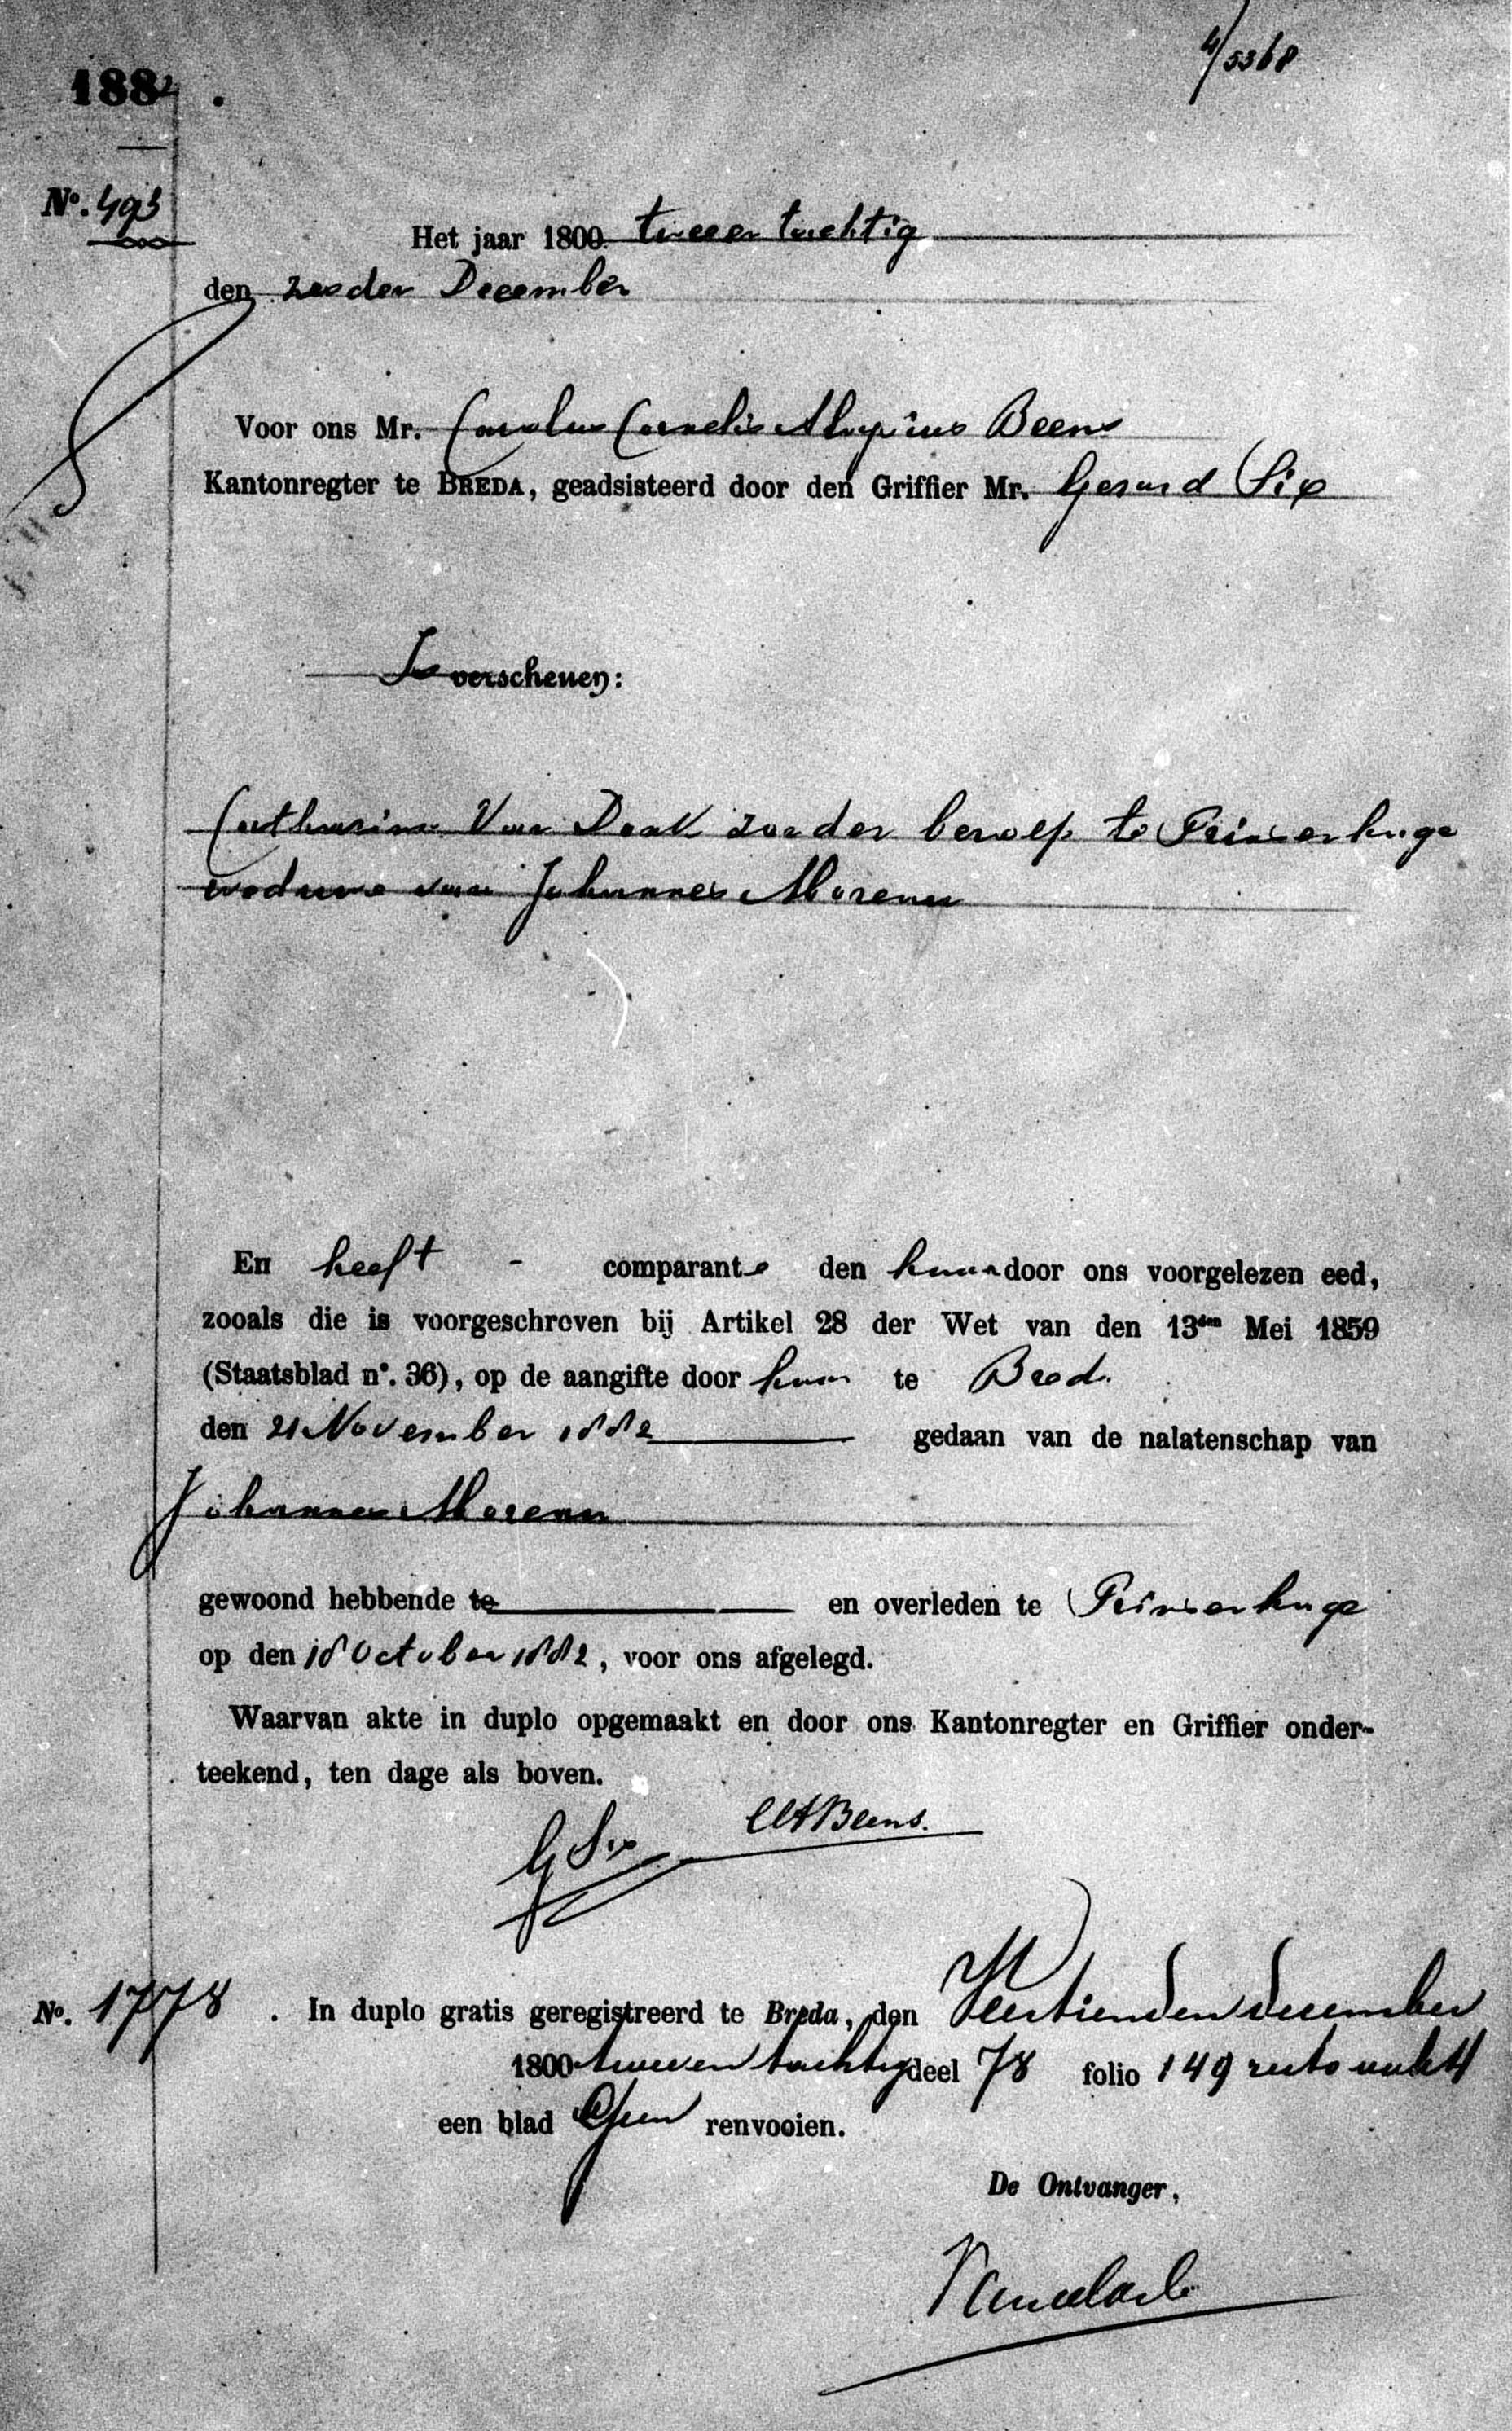 4/5368
1882.
No. 493
Het jaar 1800 twee en tachtig
den zesden December
Voor ons Mr. Carolus Cornelis Alupius Beens
Kantonregter te BREDA, geadsisteerd door den Griffier Mr. Gerard Six
Is verschenen:
Catharina Van Dook zonder beroep te Princenhage
weduwe van Johannes Marenus
En heeft - comparante den haar door ons voorgelezen eed,
zooals die is voorgeschreven bij Artikel 28 der Wet van den 13den Mei 1859
(Staatsblad n°. 36), op de aangifte door haar te Breda
den 21 November 1882 gedaan van de nalatenschap van
Johannes Marenus
gewoond hebbende te en overleden te Princenhage
op den 18 October 1882, voor ons afgelegd.
Waarvan akte in duplo opgemaakt en door ons Kantonregter en Griffier onder-
teekend, ten dage als boven.
G Six CCABeens.
No. 1778. In duplo gratis geregistreerd te Breda, den Veertienden december
1800 twee en tachtig deel 78 folio 149 recto vak 4
een blad Geen renvooien.
De Ontvanger,